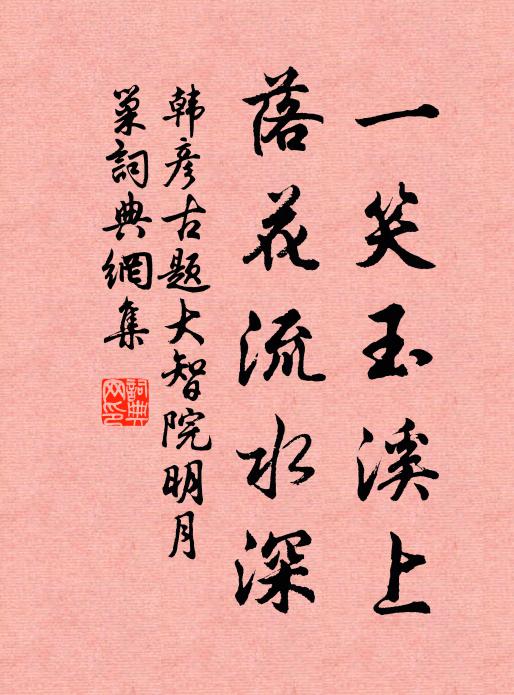 一笑玉溪上
落花流水深
韩彦古题大智院明月
巢詞典網集
詞典
网印